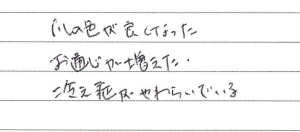 の色が良くなった
お通じが増えた.
冷え症がやわらいでいる